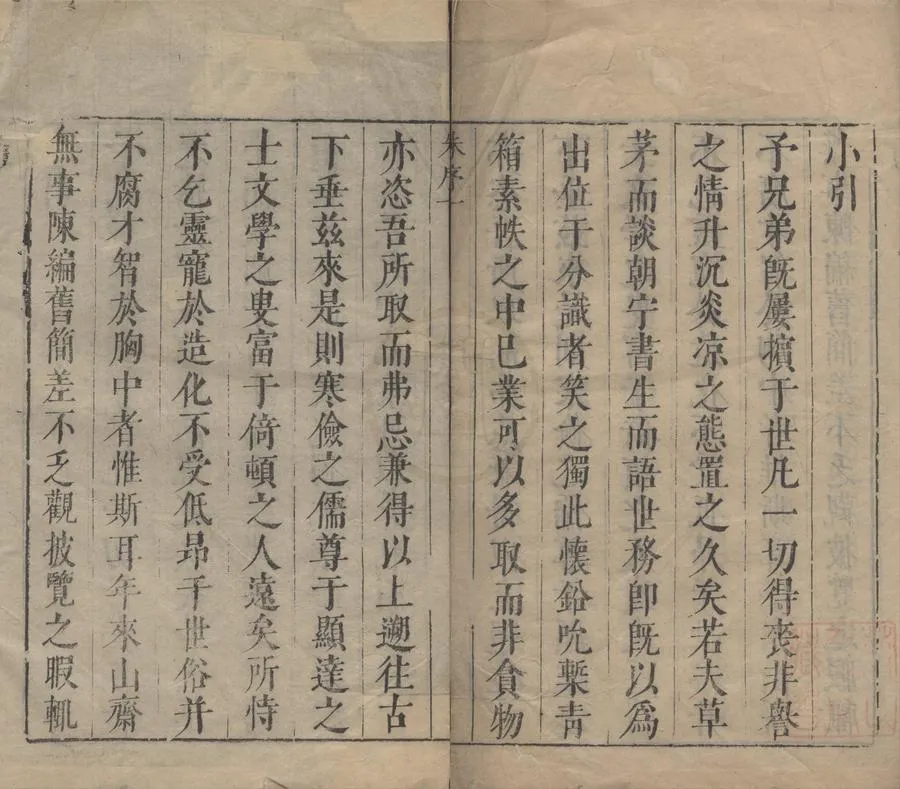 小引
予兄弟旣屢擯于世凡一切得喪非譽
之情升沉炎凉之態置之久矣若夫草
茅而談朝宁書生而語世務卽旣以爲
出位干分識者笑之獨此懷鉛吮槧靑
箱素帙之中已業可以多取而非貪物
朱序一
亦恣吾所取而弗忌兼得以上遡往古
下垂兹來是則寒儉之儒尊于顯達之
士文學之叟富于倚頓之人遠矣所恃
不乞靈寵於造化不受低昂于世俗并
不腐才智於胸中者惟斯耳年來山齋
無事陳編舊簡差不乏觀披覽之暇輒